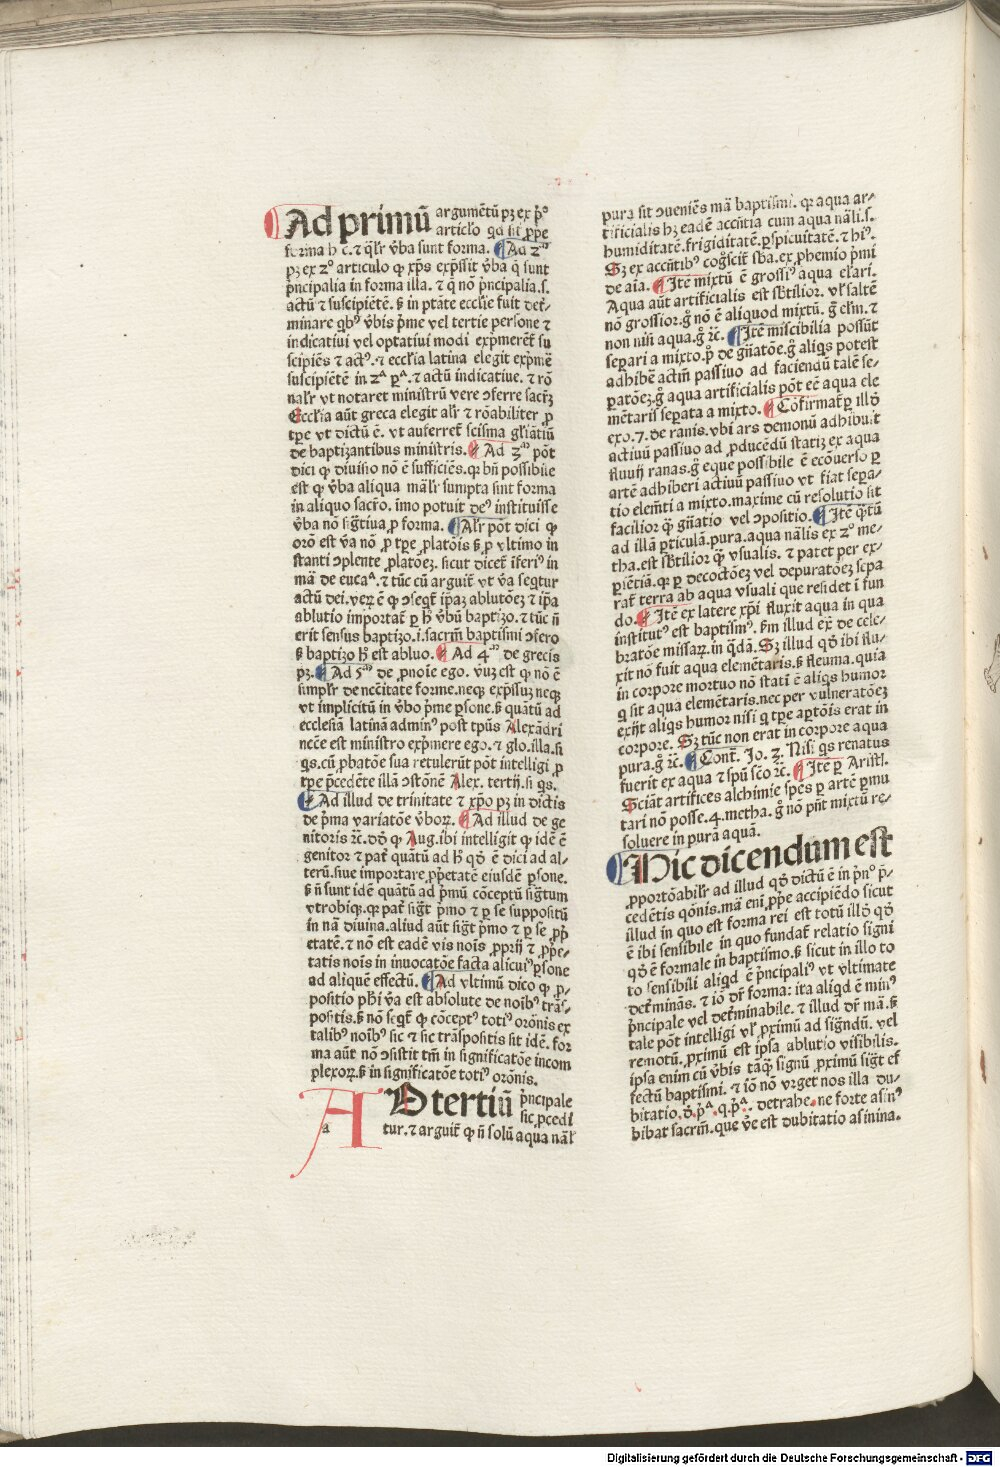 Ad primū argumētū pꝫ ex pº
articlo qd sit ꝓpe
forma hͦ ē. ⁊ qͣlr v̄ba sunt forma. Ad 2ᵐ
pꝫ ex 2º articulo ꝙ xp̄s exp̄ssit v̄ba q̄ sunt
p̄ncipalia in forma illa. ⁊ q̄ nō p̄ncipalia.s.
actū ⁊ suscipiētē. ß in ptāte eccl̄ie fuit det̄-
minare qbꝰ v̄bis p̄me vel tertie persone ⁊
indicatiui vel optatiui modi exp̄meret̄ su
scipiēs ⁊ actꝰ. ⁊ eccl̄ia latina elegit exp̄mē
suscipiētē in 2ᵃ pᵃ. ⁊ actū indicatiue. ⁊ rō
nalr̄ vt notaret ministrū vere ꝯferre sacrꝫ
Eccl̄ia aūt greca elegit alr̄ ⁊ rōabiliter ꝓ
tꝑe vt dictū ē. vt auferret̄ scisma gl̄iātiū
de baptizantibus ministris. Ad 3ᵐ pōt
dici ꝙ diuisio nō ē sufficiēs. qꝛ bn̄ possibile
est ꝙ v̄ba aliqua mālr̄ sumpta sint forma
in aliquo sacr̄o. imo potuit deꝰ instituisse
v̄ba nō siḡtiua ꝓ forma. Alr̄ pōt dici ꝙ
orō est v̄a nō ꝓ tꝑe ꝓlatōis ß ꝓ vltimo in
stanti ꝯplente ꝓlatōeꝫ. sicut dicet̄ īferiꝰ in
mā de eucaᵃ. ⁊ tūc cū arguit̄ vt v̄a seq̄tur
actū dei. veꝝ ē ꝙ ꝯseq̄t̄ ip̄aꝫ ablutōeꝫ ⁊ ip̄a
ablutio importat̄ ꝑ h̄ v̄bū baptizo. ⁊ tūc n̄
erit sensus baptizo.i.sacrm̄ baptismi ꝯfero
ß baptizo h̄ est abluo. Ad 4ᵐ de grecis
pꝫ. Ad 5ᵐ de ꝓnoīe ego. vuꝫ est ꝙ nō ē
simplr̄ de nēcitate forme. neqꝫ exp̄ssuꝫ neqꝫ
vt implicitū in v̄bo p̄me ꝑsone. ß quātū ad
ecclesiā latinā adminꝰ post tp̄us Alexādri
necē est ministro exp̄mere ego. ⁊ glo. illa. si
qs. cū ꝓbatōe sua retulerūt pōt intelligi ꝓ
tꝑe p̄cedēte illā ꝯstōnē Alex. tertij. si qs.
Ad illud de trinitate ⁊ xp̄o pꝫ in dictis
de p̄ma variatōe v̄boꝝ. Ad illud de ge
nitoris ⁊c. dō ꝙ Aug. ibi intelligit ꝙ idē ē
genitor ⁊ pat̄ quātū ad h̄ qð ē dici ad al-
terū. siue importare ꝓpetatē eiusdē ꝑsone.
ß n̄ sunt idē quātū ad p̄mū cōceptū siḡtum
vtrobiqꝫ. qꝛ pat̄ siḡt p̄mo ⁊ ꝑ se suppositū
in nā diuina. aliud aūt siḡt p̄mo ⁊ ꝑ se ꝓp̄
etatē. ⁊ nō est eadē vis nois ꝓprij ⁊ ꝓpe-
tatis nois in inuocatōe facta alicuiꝰ ꝑsone
ad aliquē effectū. Ad vltimū dico ꝙ ꝓ-
positio pbī v̄a est absolute de noībꝰ trās-
positis. ß nō seqt̄ ꝙ cōceptꝰ totiꝰ orōnis ex
talibꝰ noībꝰ sic ⁊ sic trāspositis sit idē. for
ma aūt nō ꝯsistit tm̄ in significatōe incom
plexoꝝ. ß in significatōe totiꝰ orōnis.
AD tertiū p̄ncipale
sic ꝓcedi
a tur. ⁊ arguit̄ ꝙ n̄ solū aqua nālr̄
pura sit ꝯueniēs mā baptismi. qꝛ aqua ar-
tificialis hꝫ eadē accn̄tia cum aqua nāli.s.
humiditatē. frigiditatē. ꝑspicuitatē. ⁊ hiꝰ.
Sꝫ ex accn̄tibꝰ cog̊scit̄ sb̄a. ex ꝓhemio p̄mi
de aīa. Itē mixtū ē grossiꝰ aqua elari.
Aqua aūt artificialis est sb̄tilior. vl̄ saltē
nō grossior. g̊ nō ē aliquod mixtū. g̊ elm̄. ⁊
non nisi aqua. g̊ ⁊c. Itē miscibilia possūt
seꝑari a mixto. p̊ de gn̄atōe. g̊ aliqs potest
adhibē actm̄ passiuo ad faciendū talē se-
ꝑatōeꝫ. g̊ aqua artificialis pōt eē aqua ele
mētaris seꝑata a mixto. Cōfirmat̄ ꝑ illð
exo. 7. de ranis. vbi ars demonū adhibuit
actiuū passiuo ad ꝓducēdū statiꝫ ex aqua
fluuij ranas. g̊ eque possibile ē ecōuerso ꝑ
artē adhiberi actiuū passiuo vt fiat seꝑa-
tio elem̄ti a mixto. maxime cū resolutio sit
facilior ꝙ̄ gn̄atio vel ꝯpositio. Itē q̄tū
ad illā ꝑticulā. pura. aqua nālis ex 2º me-
tha. est sb̄tilior ꝙ̄ vsualis. ⁊ patet per ex-
piētiā. qꝛ ꝑ decoctōeꝫ vel depuratōeꝫ seꝑa
rat̄ terra ab aqua vsuali que residet ī fun
do. Itē ex latere xp̄i fluxit aqua in qua
institutꝰ est baptismꝰ. ßm illud ex̄ de cele-
bratōe missaꝝ. in q̄dā. Sꝫ illud qð ibi flu-
xit nō fuit aqua elemētaris. ß fleuma. quia
in corpore mortuo nō statī ē aliqs humor
q sit aqua elemētaris. nec per vulneratōeꝫ
exijt aliqs humor nisi q tꝑe aꝑtōis erat in
corpore. Sꝫ tūc non erat in corpore aqua
pura. g̊ ⁊c. Cont̄. Jo. 3. Nisi qs renatus
fuerit ex aqua ⁊ spū sc̄o ⁊c. Itē ꝑ Aristl.
Sciāt artifices alchimie sp̄es ꝑ artē ꝑmu
tari nō posse. 4. metha. g̊ nō pn̄t mixtū re-
soluere in purā aquā.
Hic dicendum est
ꝓportōabilr̄ ad illud qð dictū ē in p̄nº p̄-
cedētis qōnis. mā enī ꝓpe accipiēdo sicut
illud in quo est forma rei est totū illð qð
ē ibi sensibile in quo fundat̄ relatio signi
qð ē formale in baptismo. ß sicut in illo to
to sensibili aliqd ē p̄ncipaliꝰ vt vltimate
det̄minās. ⁊ iō dr̄ forma: ita aliqd ē minꝰ
p̄ncipale vel det̄minabile. ⁊ illud dr̄ mā. ß
tale pōt intelligi vl̄ ꝓximū ad siḡndū. vel
remotū. ꝓximū est ipsa ablutio visibilis.
ipsa enim cū v̄bis tāqꝫ signū ꝓximū siḡt ef
fectū baptismi. ⁊ iō nō vrget nos illa du-
bitatio. ð. pᵃ. q. pᵃ. detrahe. ne forte asinꝰ
bibat sacrm̄. que v̄e est dubitatio asinina.
Digitalisierung gefördert durch die Deutsche Forschungsgemeinschaft - DFG